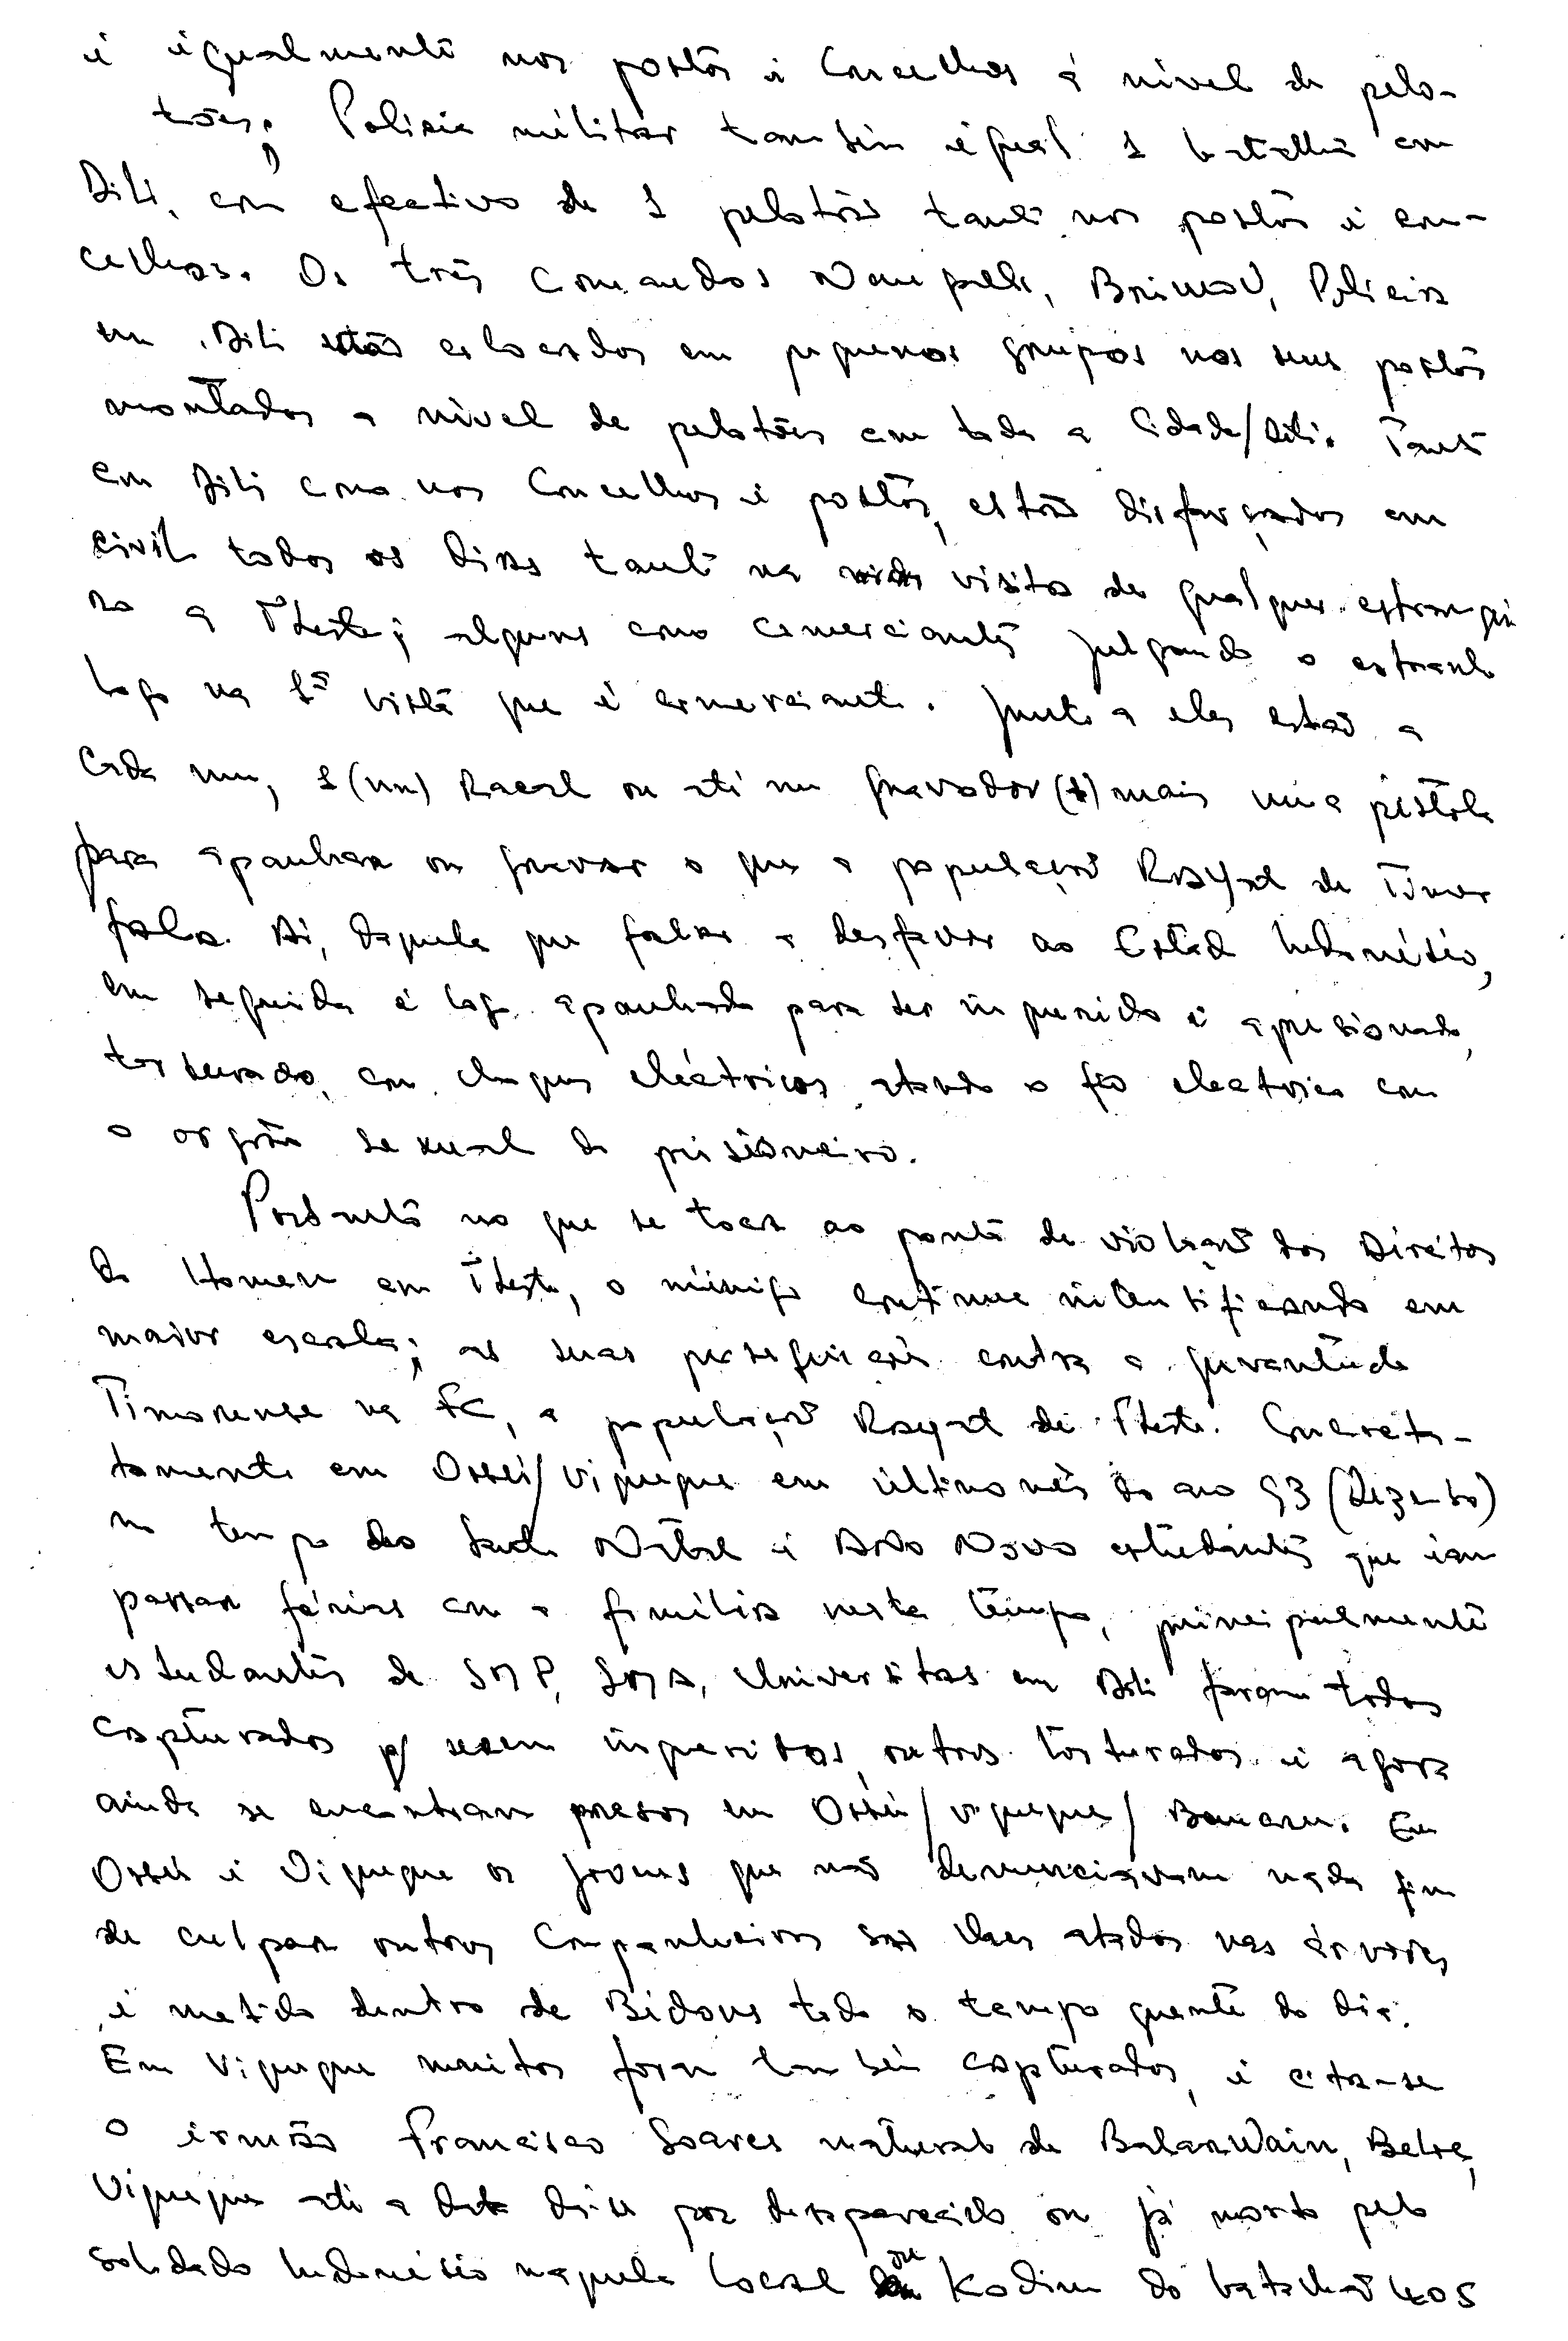 e igualmente nos postos e Concelhos a nível de pelo-
tões; Policia militar também igual 1 batalhão em
Dili, com efectivo de 1 pelotão tanto nos postos e con-
celhos. Os três Comandos Nanggala, Brimob, Policia
em Dili estão colocados em pequenos grupos nos seus postos
montados a nível de pelotões em toda a Cidade/Dili. Tanto
em Dili como nos Concelhos e postos, estão disfarçados em
civil todos os dias tanto na visita de qualquer estrangei
ro a TLeste; alguns como comerciantes julgando o estranho
logo na 1ª vista que é comerciante. Junto a eles estão a
cada um, 1 (um) Racal ou até um gravador (1) mais uma pistola
para apanhar ou gravar o que a população Rayat de Timor
fala. Aí, daquele que falar a desfavor ao Estado Indonésio,
em seguida é logo apanhado para ser inquirido e aprisionado,
torturado, com choques eléctricos atando o fio electrico com
o orgão sexual do prisioneiro.
Portanto no que se toca ao ponto de violação dos Direitos
do Homem em TLeste, o inimigo continua intensificando em
maior escala; as suas perseguições contra a juventude
Timorense na FC, a população Rayat de TLeste. Concreta-
tamente em Ossú/Viqueque em último mês do ano 93 (Dezembro)
no tempo do Santo Natal e Ano Novo estudantes que iam
passar férias com a família neste tempo, principalmente
estudantes de SMP, SMA, Universitas em Dili foram todos
capturados p/ serem inqueridos, outros torturados e agora
ainda se encontram presos em Ossú/Viqueque/Baucau. Em
Ossú e Viqueque os jovens que não denunciavam nada fim
de culpar outros Companheiros são atados nas árvores
e metido dentro de Bidons todo o tempo quente do dia.
Em Viqueque muitos foram também capturados, e cita-se
o irmão Francisco Soares natural de BalarWain, 
Viqueque até a data dá-se por desaparecido ou já morto pelo
soldado Indonésio naquele local ou Kodim do batalhão 405